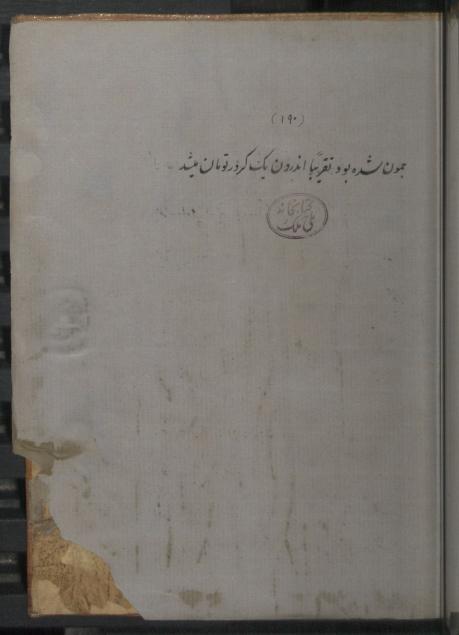 (۱۹۰)
جمون شده بود تقریبًا اندرون یک کرور تومان میشد
کتابخانه
ملی ملک